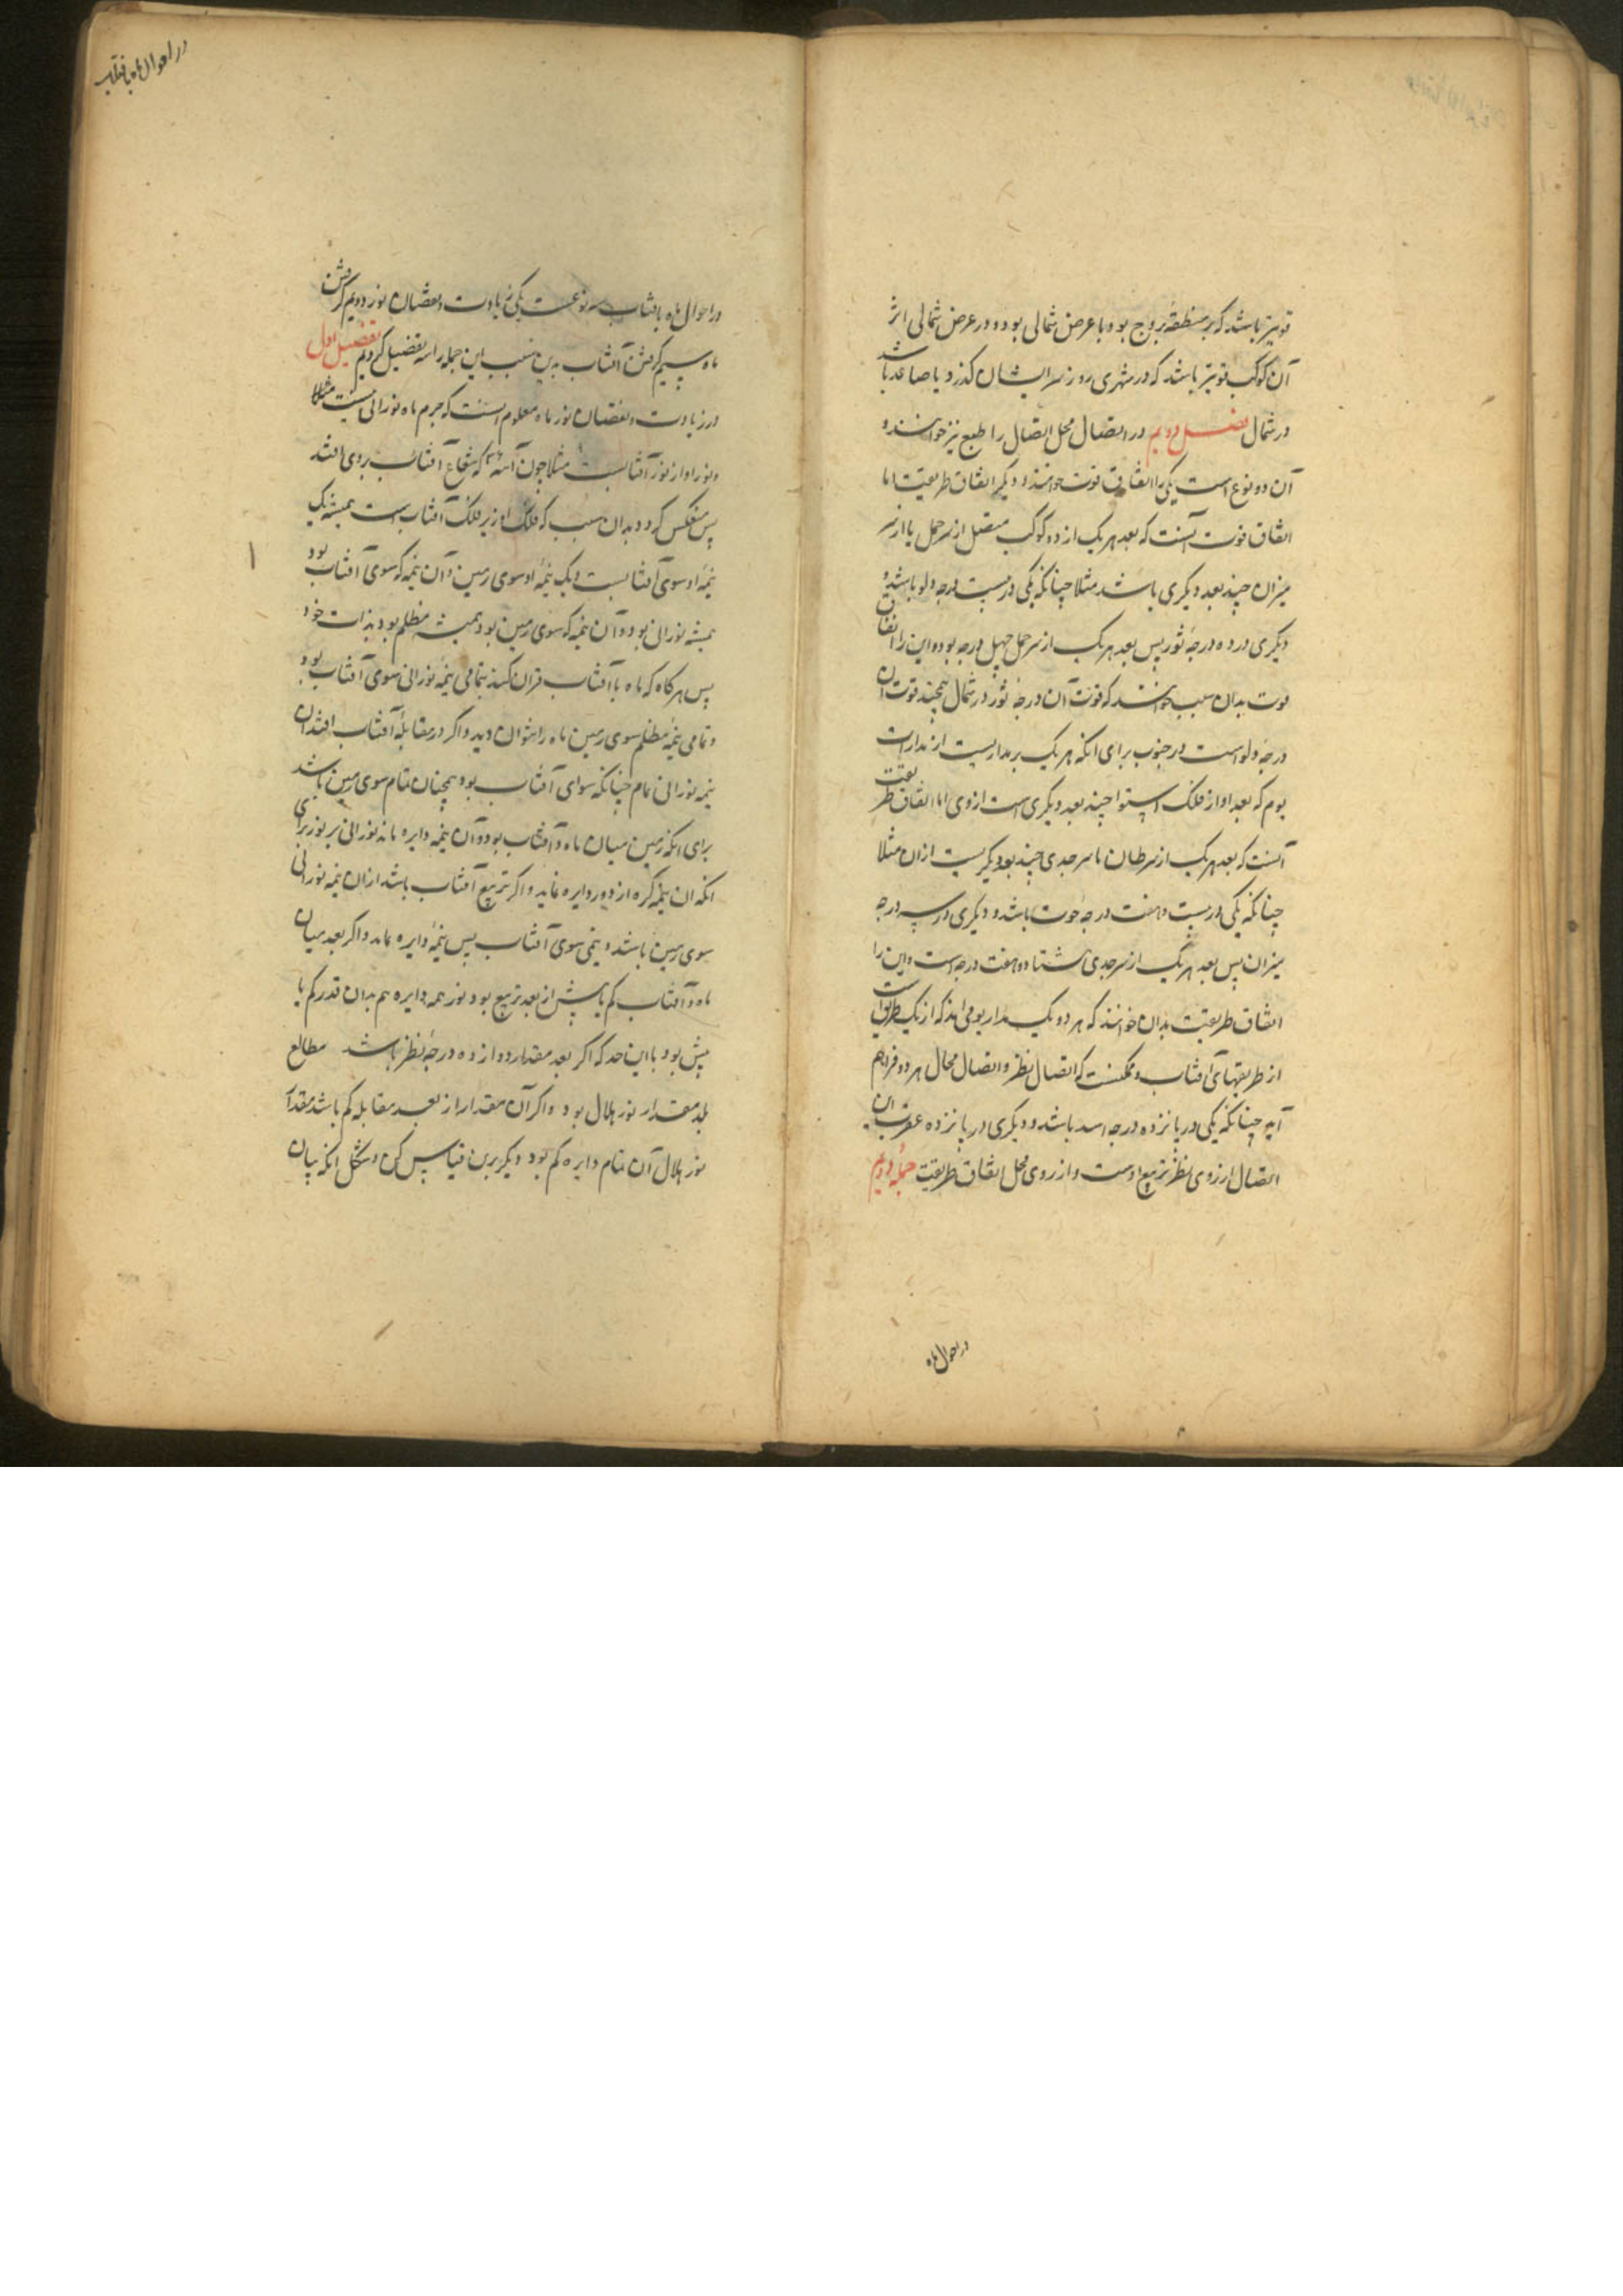 قویتر باشد که بر منطقهٔ بروج بود و با عرض شمالی بود و در عرض شمالی اثر
آن کوکب قویتر باشد که در شهری روز سر ایشان گذرد یا صاعد باشد
در شمال فصل دویم در اتصال محل اتصال را طبع نیز خوانند و
آن دو نوع است یکی را اتفاق قوت خوانند و دیگر اتفاق طریقیت اما
اتفاق قوت آنست که بعد هر یک از دو کوکب متصل از سر حمل یا از سر
میزان چند بعد دیگری باشد مثلا چنانکه یکی در بیست درجه دلو باشد و
دیگری در ده درجهٔ ثور پس بعد هر یک از سر حمل چهل درجه بود و این را اتفاق
قوت بدان سبب خوانند که قوت آن درجهٔ ثور در شمال همچند قوت آن
درجهٔ دلو است در جنوب برای انکه هر یک بر مداریست از مدارات
یوم که بعد او از فلک استوا چند بعد دیگری است از وی اما اتفاق طریقیت
آنست که بعد هر یک از سر طان یا سر جدی چند بعد دیگریست ازان مثلا
چنانکه یکی در بیست و هفت درجهٔ حوت باشد و دیگری در سه درجه
میزان پس بعد هر یک از سر جدی هشتاد و هفت درجه است و این را
اتفاق طریقیت بدان خوانند که هر دو یک مدار یومی اند که از یک طریق است
از طریقهای آفتاب و ممکنست که اتصال نظر و اتصال محال هر دو فراهم
آید چنانکه یکی در پانزده درجه اسد باشد و دیگری در پانزده عقرب این
اتصال از روی نظر تربیع اوست و از روی محل اتفاق طریقیت جملهٔ دویم
در احوال ماه
در احوال ماه بافتاب
در احوال ماه بافتاب سه نوعست یکی زیادت و نقصان نور دویم گرفتن
ماه سیم گرفتن آفتاب بدین سبب این جمله را سه تفضیل کردیم تفضیل اول
در زیادت و نقصان نور ماه معلوم است که جرم ماه نورانی نیست مثلا
و نور او از نور آفتابست مثلا چون آینه که شعاع آفتاب بر وی افتد
پس منعکس گردد بدان سبب که فلک او زیر فلک آفتاب است همیشه یک
نیمهٔ او سوی آفتابست و یک نیمهٔ او سوی زمین و آن نیمه که سوی آفتاب بود
همیشه نورانی بود و آن نیمه که سوی زمین بود همیشه مظلم بود بذات خود
پس هرگاه که ماه با آفتاب قران کند بتمامی نیمهٔ نورانی سوی آفتاب بود
و تمامی نیمهٔ مظلم سوی زمین ماه را نتوان دید و اگر در مقابلهٔ آفتاب افتد آن
نیمه نورانی تمام چنانکه سوای آفتاب بود همچنان تمام سوی زمین باشد
برای انکه زمین میان ماه و آفتاب بود و آن نیمه دایره ماند نورانی پر نور برای
انکه ان نیمه کره از دور دایره نماید و اگر تربیع آفتاب باشد ازان نیمه نورانی
سوی زمین باشد و نیمی سوی آفتاب پس نیمهٔ دایره ماند و اگر بعد میان
ماه و آفتاب کم یا بیش از بعد تربیع بود نور همه دایره هم بدان قدر کم یا
بیش بود با این حد که اگر بعد مقدار دوازده درجهٔ نظر باشد مطالع
بلد مقدار نور هلال بود و اگر آن مقدار از بعد مقابله کم باشد مقدار
نور هلال آن تمام دایره کم بود دیگر برین قیاس کن و شکل انکه بیان